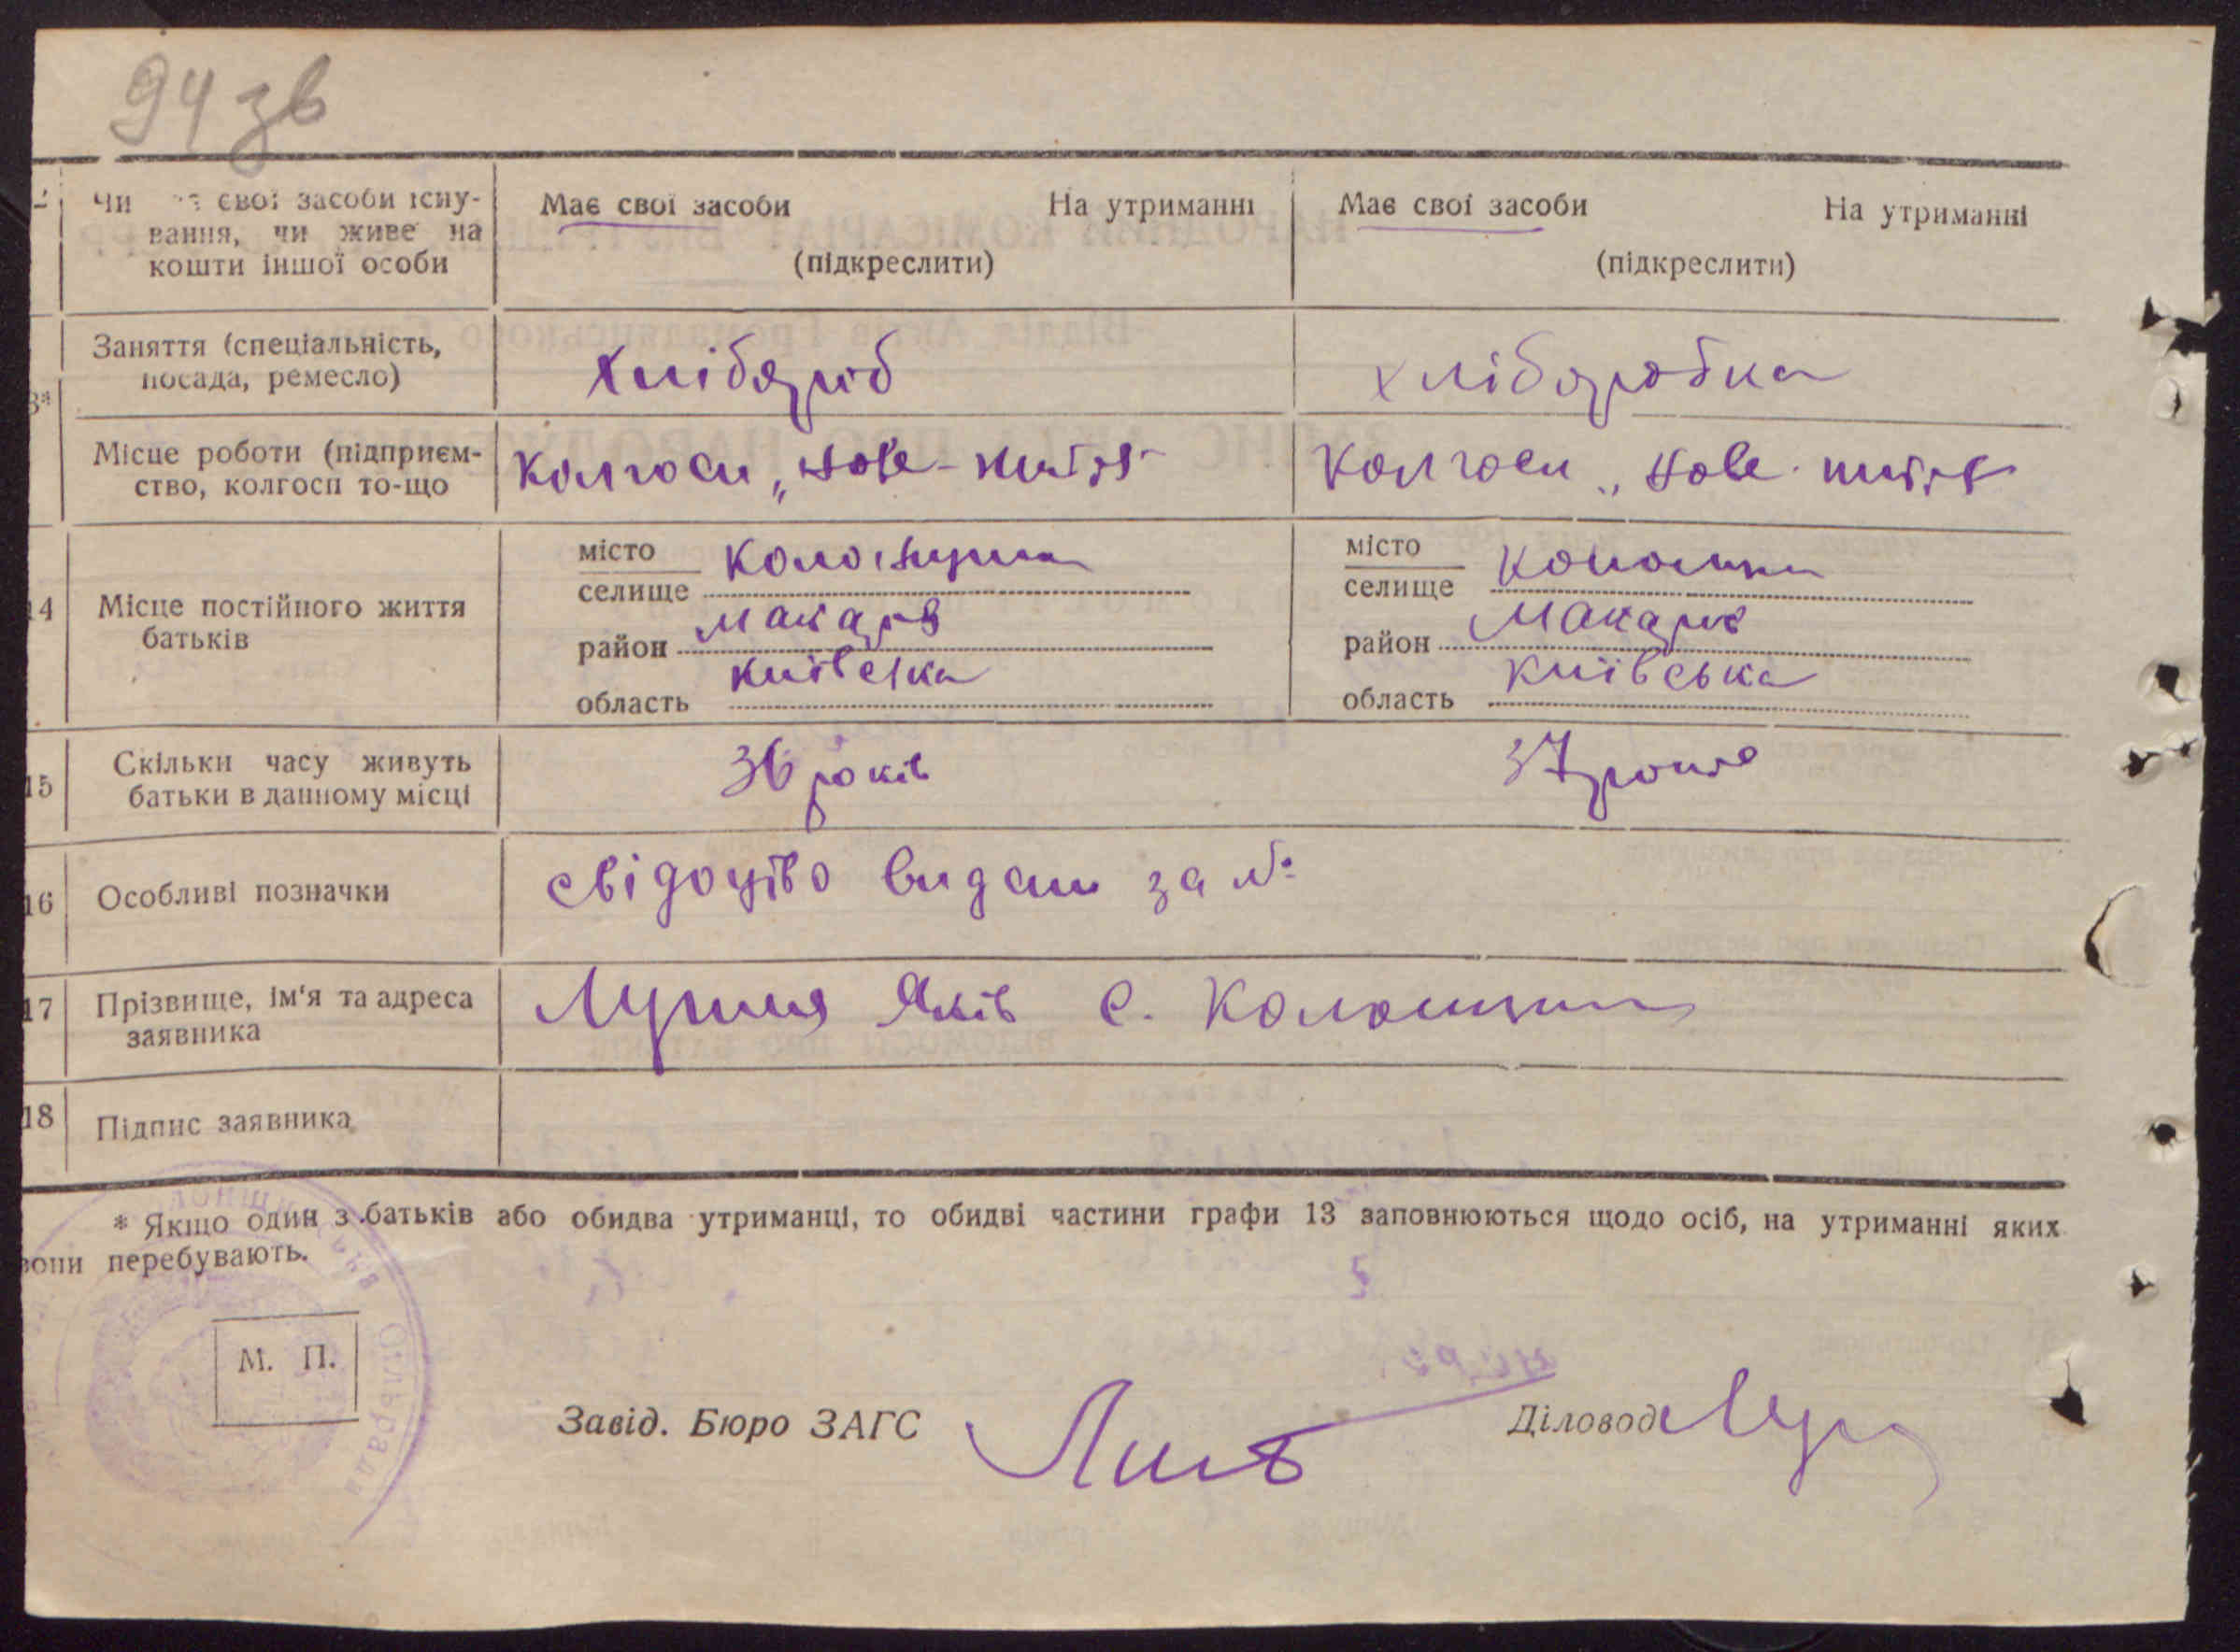 94 зв
Чи має свої засоби існування, чи живе на кошти іншої особи
Має свої засоби На утриманні
(підкреслити)
Має свої засоби На утриманні
(підкреслити)
Заняття (спеціальність,
посада, ремесло)
хлібороб
хліборобка
Місце роботи (підприєм-
ство, колгосп то-що
колгосп „нове-життя
колгосп „нове життя
14
Місце постійного життя
батьків
місто
селище
район Макарів
область київська
місто
селище
район Макарів
область київська
15
Скільки часу живуть
батьки в данному місці
36 років
37 років
16
Особливі позначки
свідоцтво видано за №
17
Прізвище, ім'я та адреса
заявника
Яків с.
18
Підпис заявника
* Якщо один з батьків або обидва утриманці, то обидві частини графи 13 заповнюються щодо осіб, на утриманні яких
вони перебувають.
М. П.
Завід. Бюро ЗАГС
Діловод